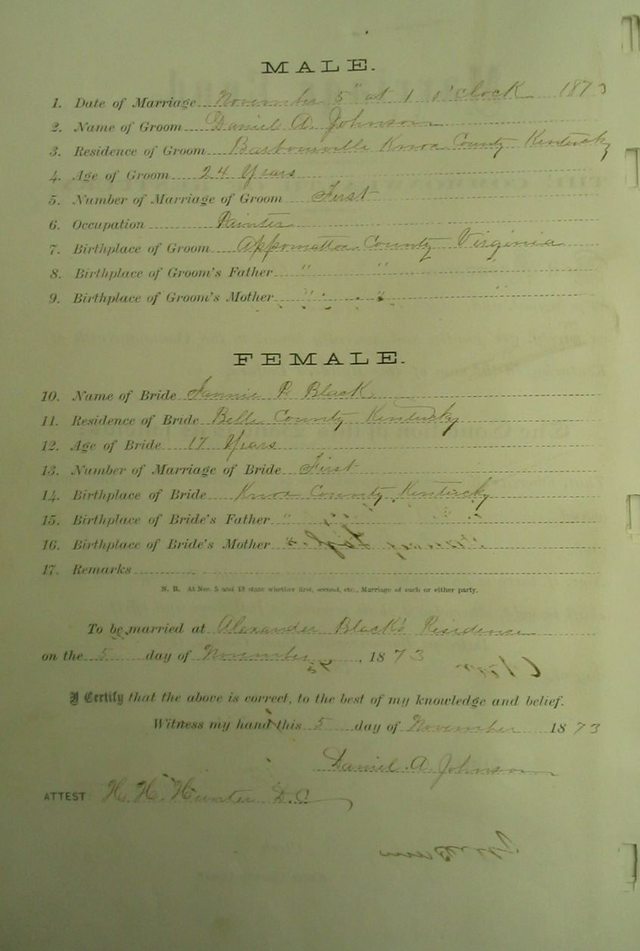 MALE.
1. Date of Marriage November 5" at 1 o'clock 1873
2. Name of Groom Daniel A. Johnson
3. Residence of Groom Barbourville Knox County Kentucky
4. Age of Groom 24 Years
5. Number of Marriage of Groom First
6. Occupation
7. Birthplace of Groom Appomattox County Virginia
8. Birthplace of Groom's Father " "
9. Birthplace of Groom's Mother " " "
FEMALE.
10. Name of Bride P. Black
11. Residence of Bride Bell County Kentucky
12. Age of Bride 17 Years
13. Number of Marriage of Bride First
14. Birthplace of Bride Knox County Kentucky
15. Birthplace of Bride's Father " " "
16. Birthplace of Bride's Mother "
17. Remarks
N. B. At Nos. 5 and 13 state whether first, second, etc., Marriage of each or either party.
To be married at Alexander Black's Residence
on the 5 day of November, 1873
I Certify that the above is correct, to the best of my knowledge and belief.
Witness my hand this 5 day of November 1873
Daniel A. Johnson
ATTEST: H. H. Hunter D.C.